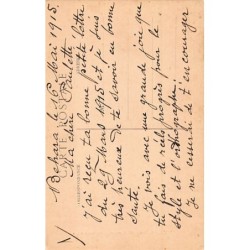 Bokhara le 16 Mai 1915
CARTE POSTALE
Ma chère Paulette
J'ai reçu ta bonne petite lettre
du 29 Mars 1915 et je suis
très heureux de te savoir en bonne
santé
Je vois avec une grande joie que
tu fais de réels progrès pour le
style et l'orthographe.
je ne cesserai de t'encourager